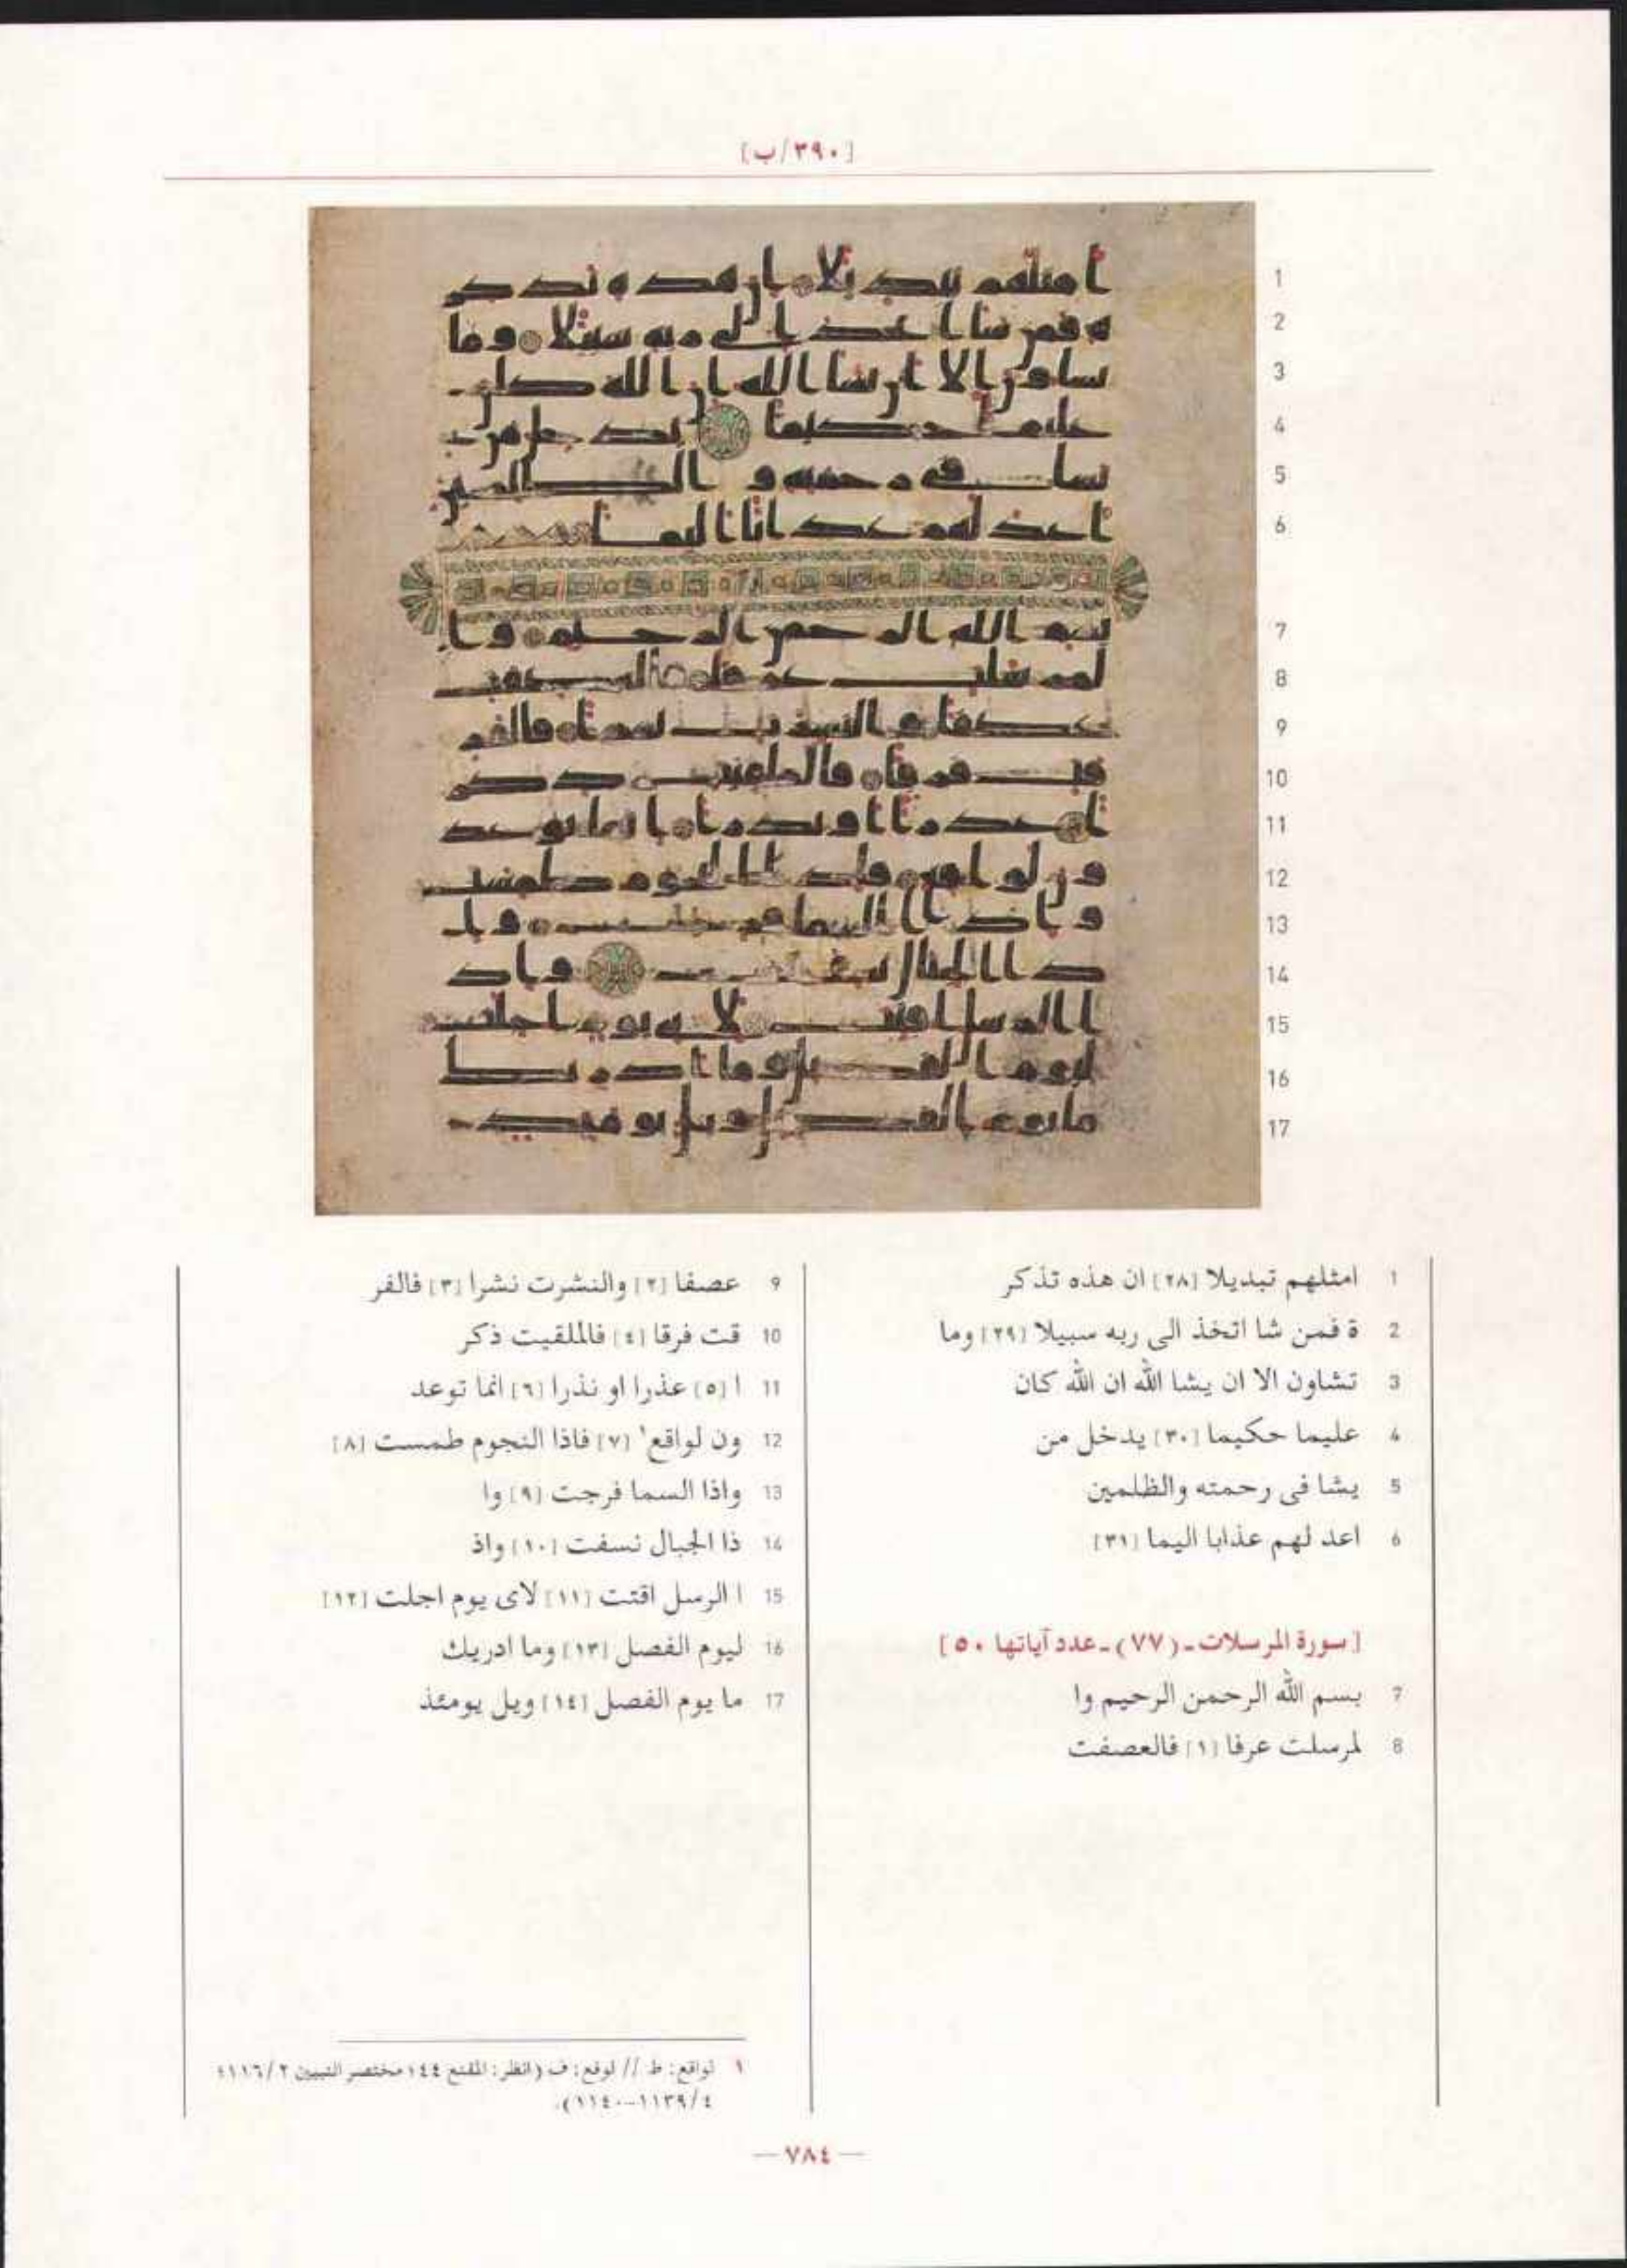 [٣٩٠/ب]
1 امثلهم تبديلا [٢٨] ان هذه تذكر
2 ة فمن شا اتخذ الى ربه سبيلا [٢٩] وما
3 تشاون الا ان يشا الله ان الله كان
4 عليما حكيما [٣٠] يدخل من
5 يشا فى رحمته والظلمين
6 اعد لهم عذابا اليما [٣١]
[سورة المرسلات ـ (٧٧) ـ عدد آياتها ٥٠]
7 بسم الله الرحمن الرحيم وا
8 لمرسلت عرفا [١] فالعصفت
9 عصفا [٢] والنشرت نشرا [٣] فالفر
10 قت فرقا [٤] فالملقيت ذكر
11 ا [٥] عذرا او نذرا [٦] انما توعد
12 ون لواقع١ [٧] فاذا النجوم طمست [٨]
13 واذا السما فرجت [٩] وا
14 ذا الجبال نسفت [١٠] واذ
15 ا الرسل اقتت [١١] لاى يوم اجلت [١٢]
16 ليوم الفصل [١٣] وما ادريك
17 ما يوم الفصل [١٤] ويل يومئذ
١ لواقع: ط // لوقع: ف (انظر: المقنع ٤٤؛ مختصر التبيين ١١٦/٢؛
١١٣٩/٤-١١٤٠).
— ٧٨٤ —